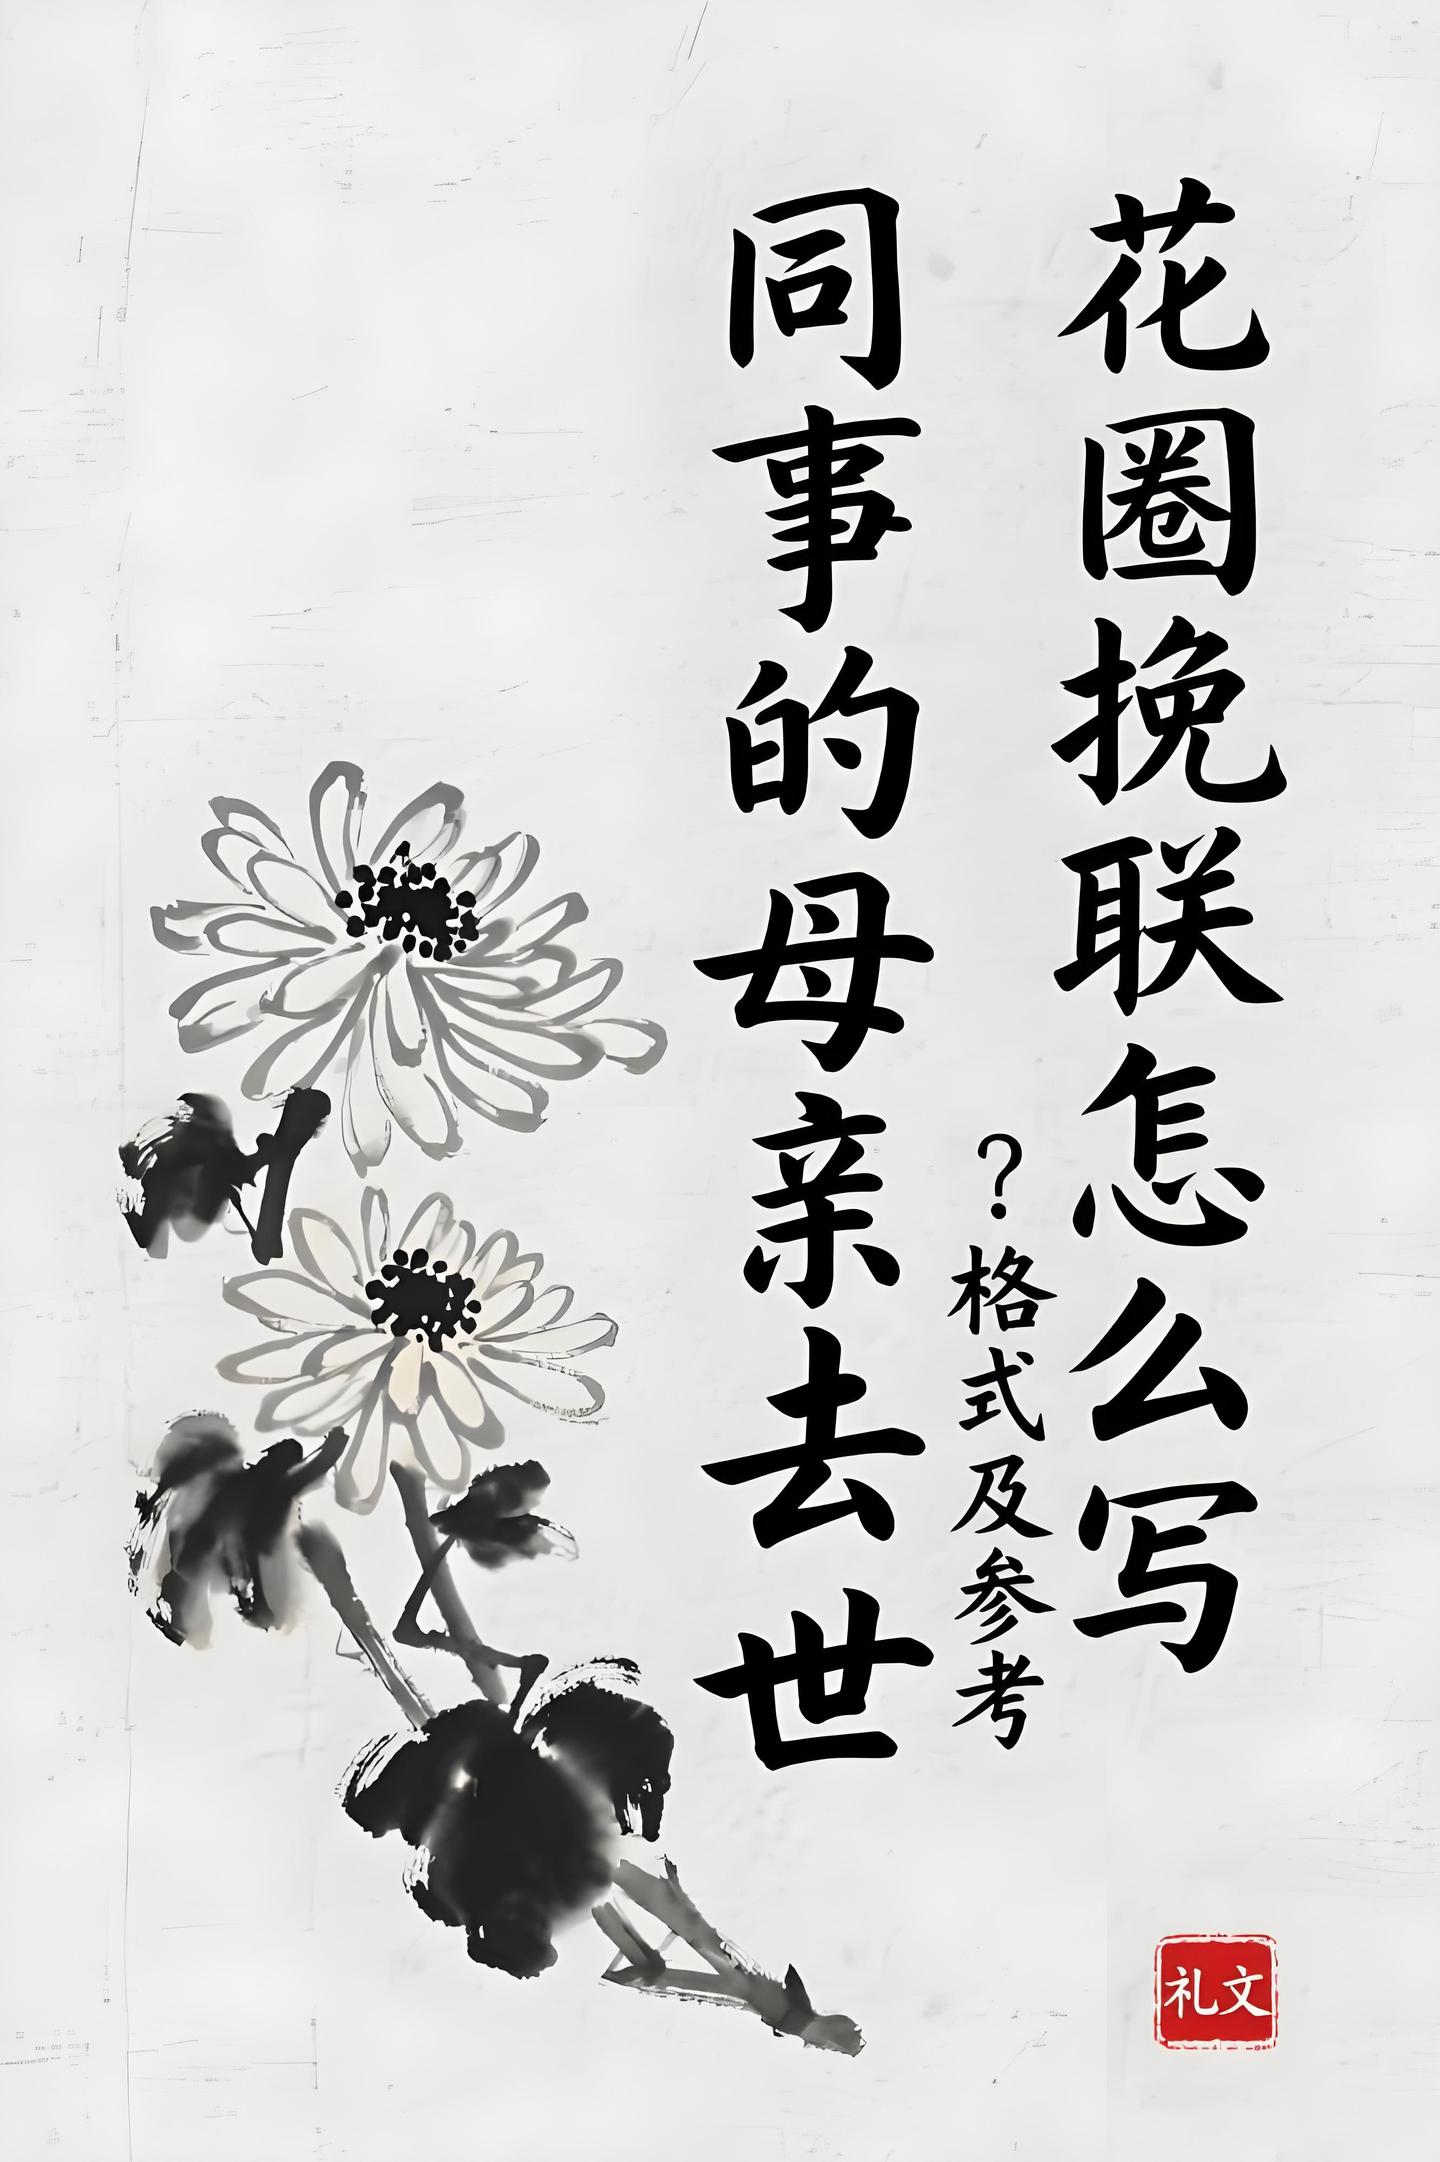 同事的母亲去世
花圈挽联怎么写
？格式及参考
礼文